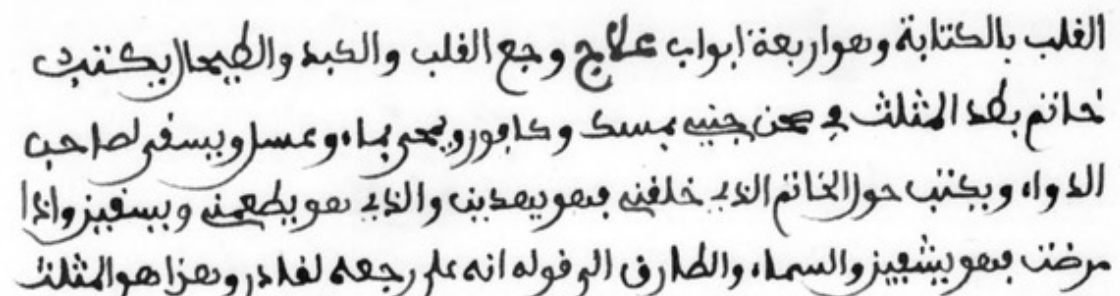 القلب بالكتابة وهو اربعة ابواب علاج وجع القلب والكبد والطيحال يكتب
خاتم بطد المثلث في صحن جنيي بمسك وكافور ويمحى بماء وعسل ويسقى لصاحب
الدواء ويكتب حول الخاتم الذي خلقني فهو يهدين والذي هو يطعمني ويسقين واذا
مرضت فهو يشفين والسماء والطارق الى قوله انه على رجعه لقادر وهذا هو المثلث